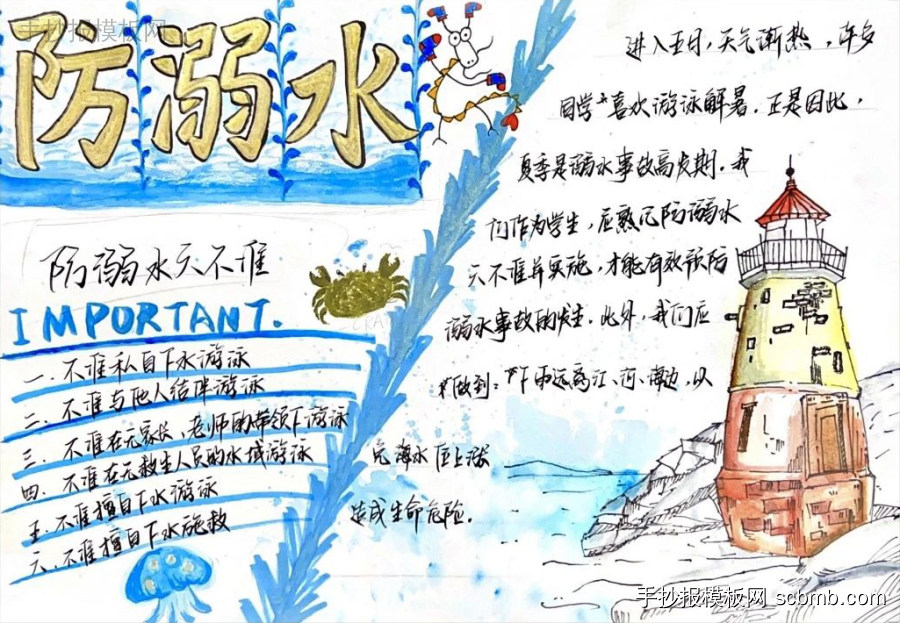 手抄报模板网
防溺水
防溺水六不准
IMPORTANT.
一.不准私自下水游泳
二.不准与他人结伴游泳
三.不准在无家长,老师的带领下游泳
四.不准在无救生人员的水域游泳
五.不准擅自下水游泳
六.不准擅自下水施救
进入五月,天气渐热,许多
同学喜欢游泳解暑.正是因此,
夏季是溺水事故高发期.我
们作为学生,应熟记防溺水
六不准并实施,才能有效预防
溺水事故的发生.此外,我们应
做到:下雨远离江、河、海边,以
免海水
造成生命危险.
手抄报模板网 scbmb.com